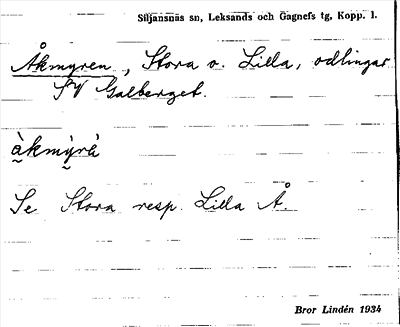 Siljansnäs sn, Leksands och Gagnefs tg, Kopp. l.
Åkmyren, Stora o. Lilla, odlingar
SV Galberget.
àkmỳrȧ
Se Stora resp. Lilla Å.
Bror Lindén 1934